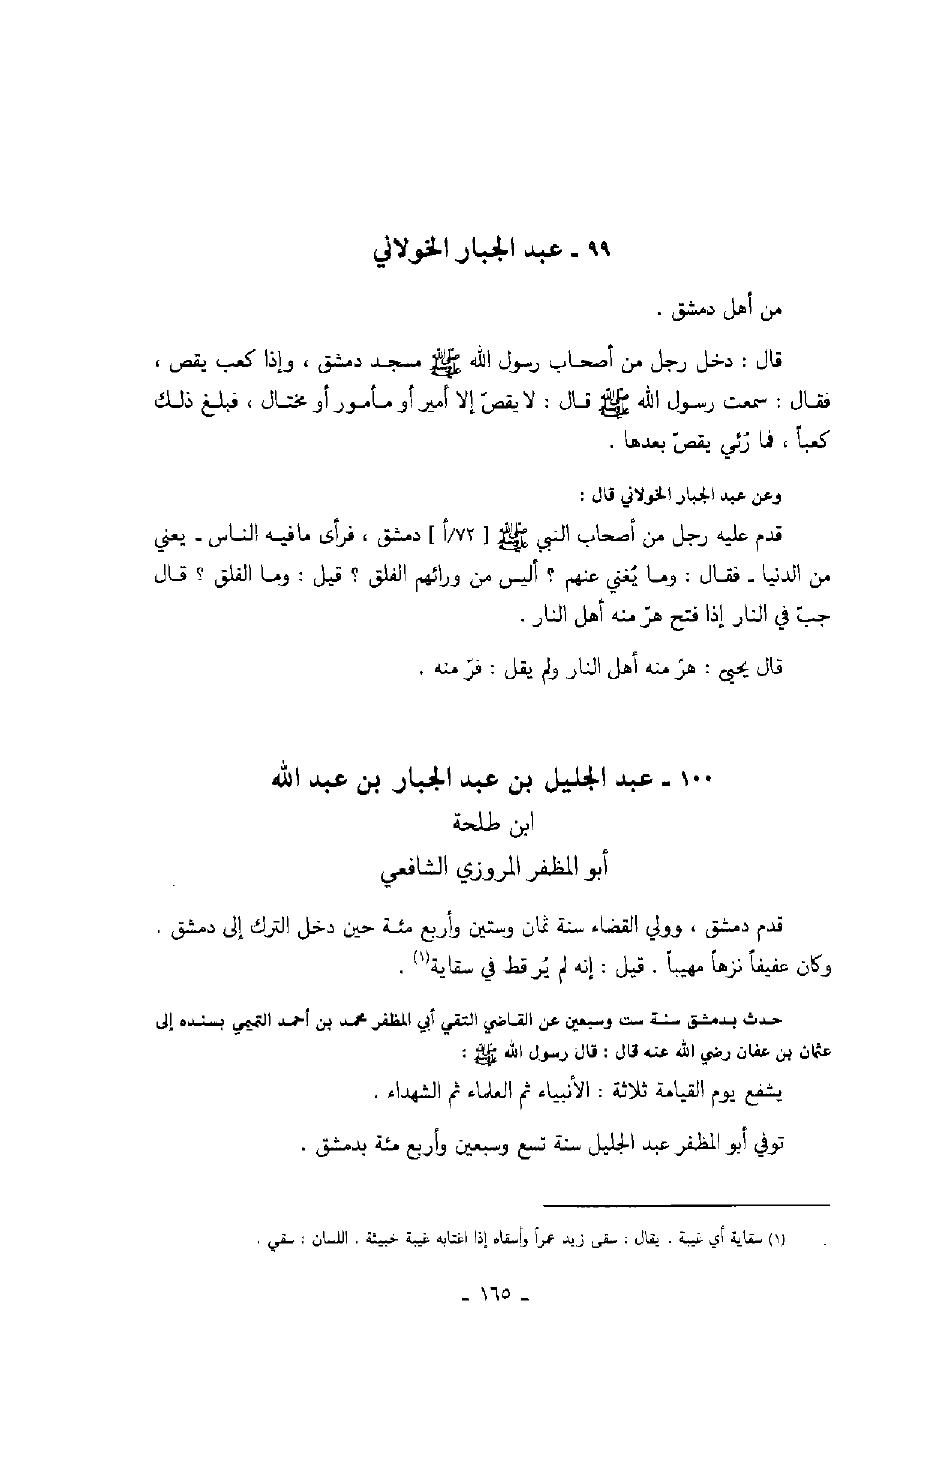 ٩٩ ـ عبد الجبار الخولاني
من أهل دمشق .
قال : دخل رجل من أصحاب رسول الله ﷺ مسجد دمشق ، وإذا كعب يقص ،
فقال : سمعت رسول الله ﷺ قال : لا يقصّ إلا أمير أو مأمور أو مختال ، فبلغ ذلك
كعباً ، فما رُئي يقصّ بعدها .
وعن عبد الجبار الخولاني قال :
قدم عليه رجل من أصحاب النبي ﷺ [ ٧٢/أ ] دمشق ، فرأى ما فيه الناس ـ يعني
من الدنيا ـ فقال : وما يُغني عنهم ؟ أليس من ورائهم الفلق ؟ قيل : وما الفلق ؟ قال
جبّ في النار إذا فتح هرّ منه أهل النار .
قال يحيى : هرّ منه أهل النار ولم يقل : فرّ منه .
١٠٠ ـ عبد الجليل بن عبد الجبار بن عبد الله
ابن طلحة
أبو المظفر المروزي الشافعي
قدم دمشق ، وولي القضاء سنة ثمان وستين وأربع مئة حين دخل الترك إلى دمشق .
وكان عفيفاً نزهاً مهيباً . قيل : إنه لم يُر قط في سقاية(١) .
حدث بدمشق سنة ست وسبعين عن القاضي التقي أبي المظفر محمد بن أحمد التميمي بسنده إلى
عثمان بن عفان رضي الله عنه قال : قال رسول الله ﷺ :
يشفع يوم القيامة ثلاثة : الأنبياء ثم العلماء ثم الشهداء .
توفي أبو المظفر عبد الجليل سنة تسع وسبعين وأربع مئة بدمشق .
(١) سقاية أي غيبة . يقال : سقى زيد عمراً وأسقاه إذا اغتابه غيبة خبيثة . اللسان : سقي .
ـ ١٦٥ ـ